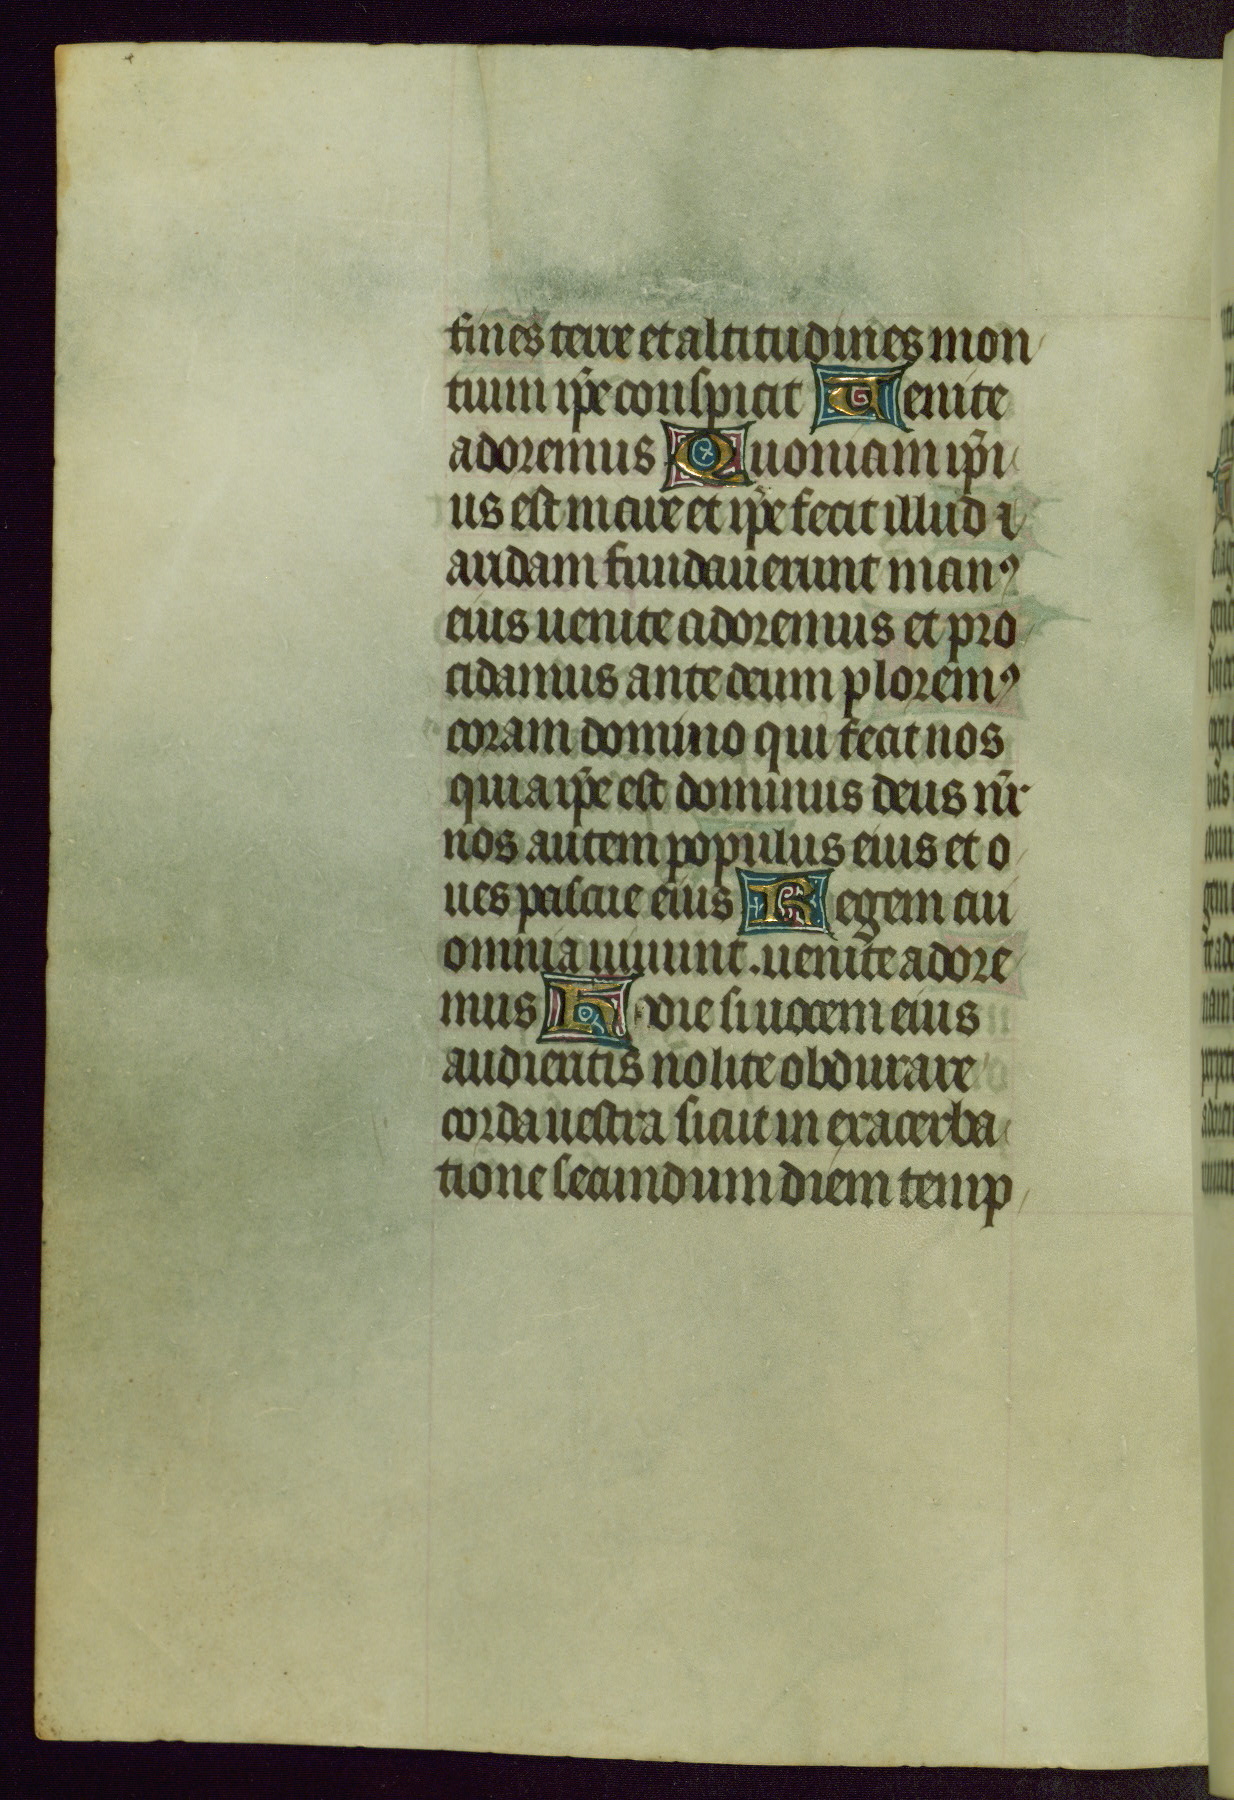 fines terre et altitudines mon
tium ip̄e conspicit Venite
adoremus Quoniam ip̄i
us est mare et ip̄e fecit illud i
aridam fundauerunt manꝰ
eius uenite adoremus et pro
cidamus ante deum ploremꝰ
coram domino qui fecit nos
quia ip̄e est dominus deus nr̄
nos autem populus eius et o
ues pascue eius Regem cui
omnia uiuunt . uenite adore
mus Hodie si uocem eius
audieritis nolite obdurare
corda uestra sicut in exacerba
tione secundum diem temp